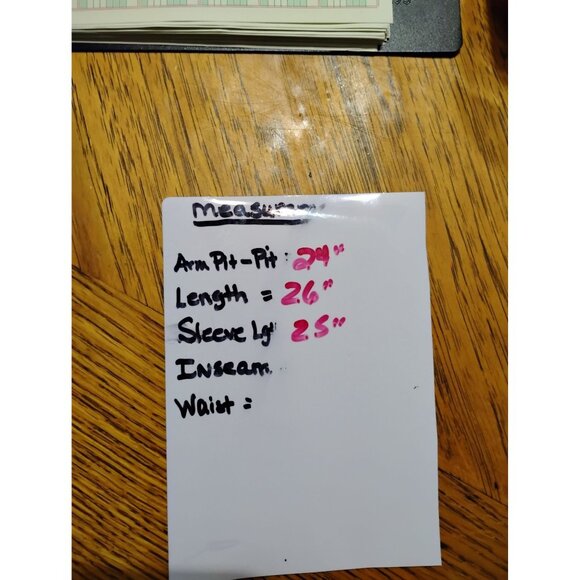 Arm Pit-Pit: 24"
Length = 26"
Sleeve Lgt 25"
Inseam.
Waist =